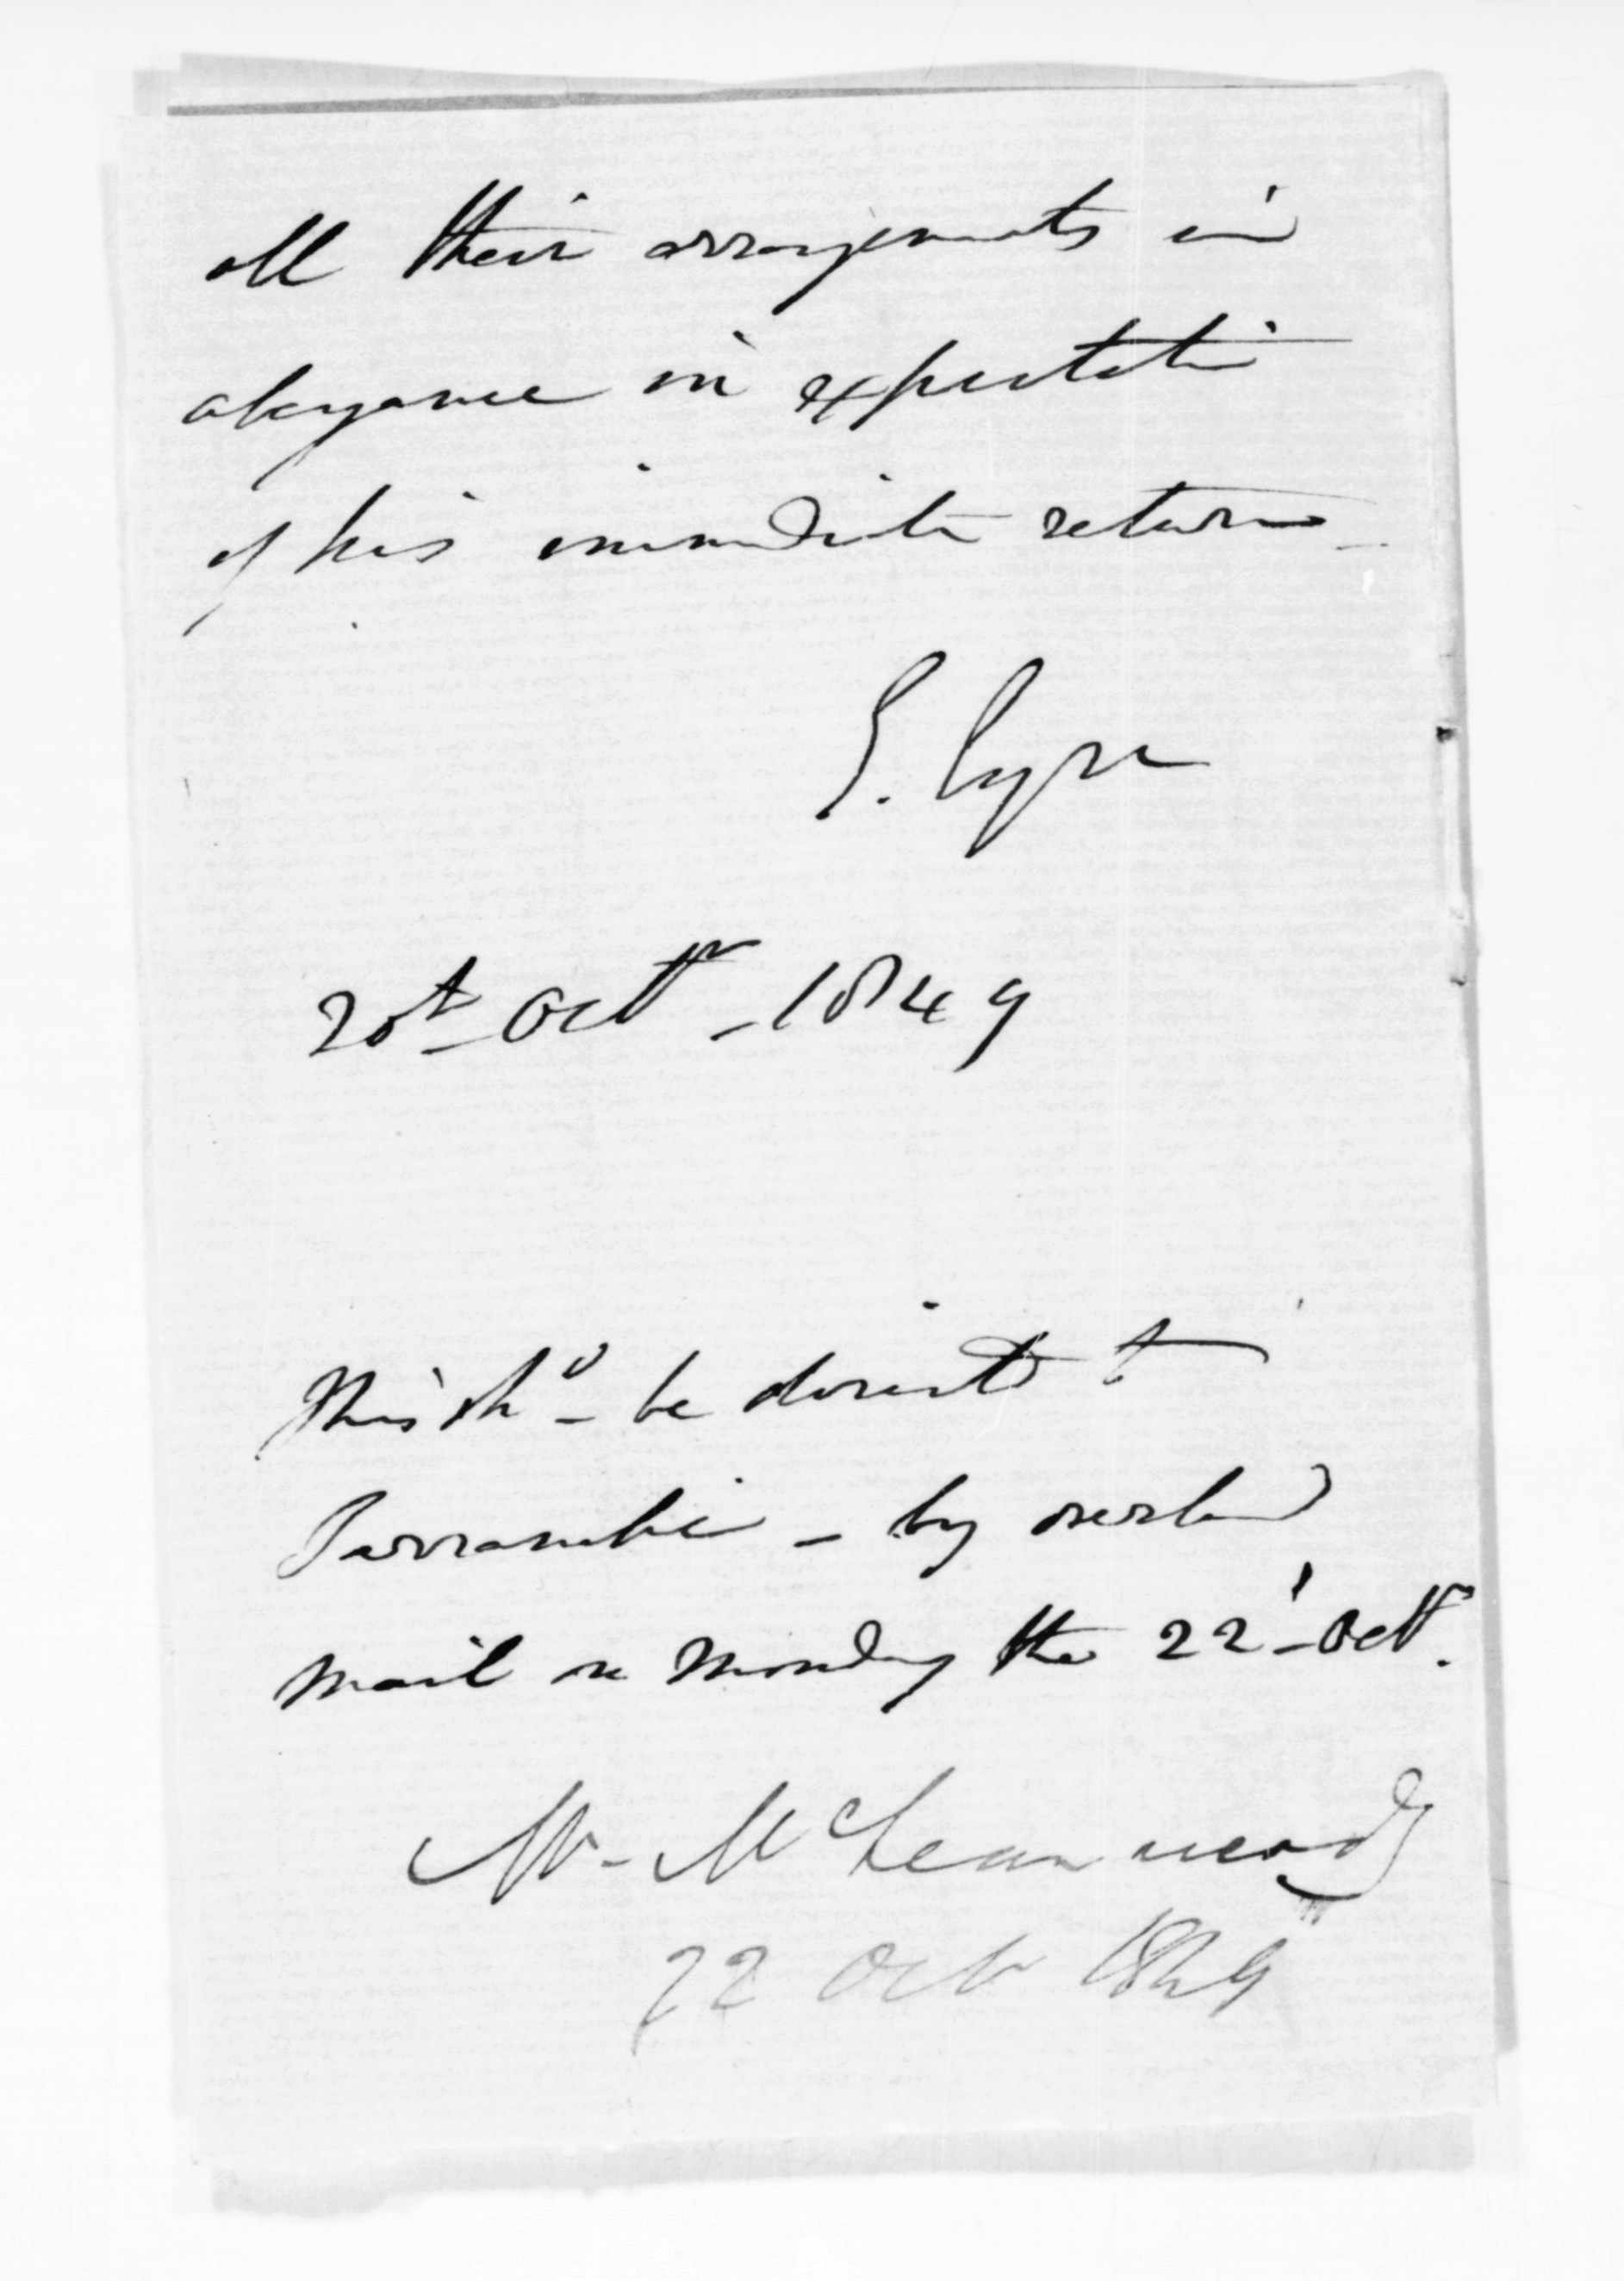 all their arrangements in
abeyance in expectation
of his immediate return
E. Eyre
20th Octr - 1849
This shd - be directed to
- by overland
mail on Monday the 22d - Octr.
Mr - McLean
22 Oct 1849